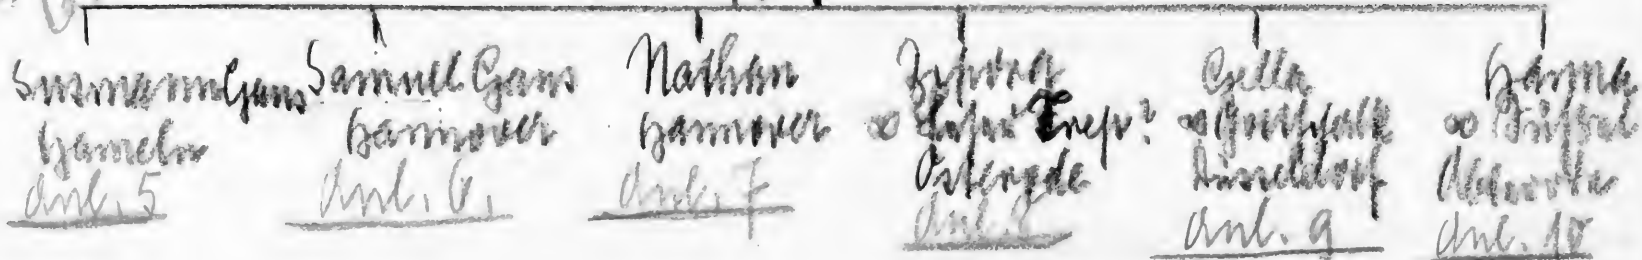 Susmann Gans
Hameln
Anl. 5
Samuel Gans
Hannover
Anl. 6.
Nathan
Hannover
Anl. 7
∞
Anl. 8
Gella
∞ Gottschalk
Düsseldorf
Anl. 9
Hanna
∞
Anl. 10